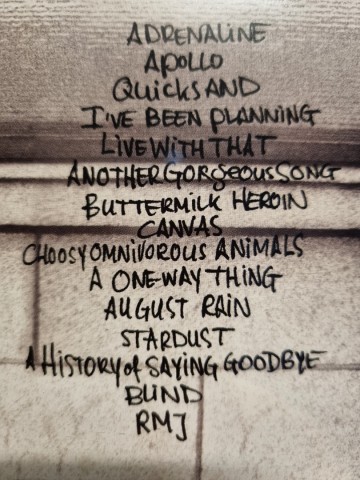 ADRENALINE
APOLLO
QUICKSAND
I'VE BEEN PLANNING
LIVE WITH THAT
ANOTHER GORGEOUS SONG
BUTTERMILK HEROIN
CANVAS
CHOOSY OMNIVOROUS ANIMALS
A ONE-WAY THING
AUGUST RAIN
STARDUST
A HISTORY of SAYING GOODBYE
BLIND
RMJ